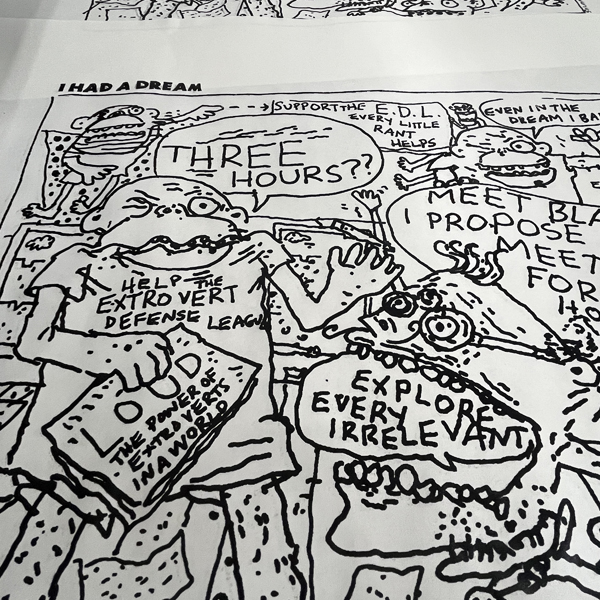 I HAD A DREAM
SUPPORT THE E.D.L.
EVERY LITTLE
RANT
HELPS
EVEN IN THE
DREAM I
THREE
HOURS??
MEET
I PROPOSE
MEET
FOR
HELP THE
EXTROVERT
DEFENSE LEAGUE
LOUD
THE POWER OF
EXTROVERTS
IN A WORLD
EXPLORE
EVERY
IRRELEVANT